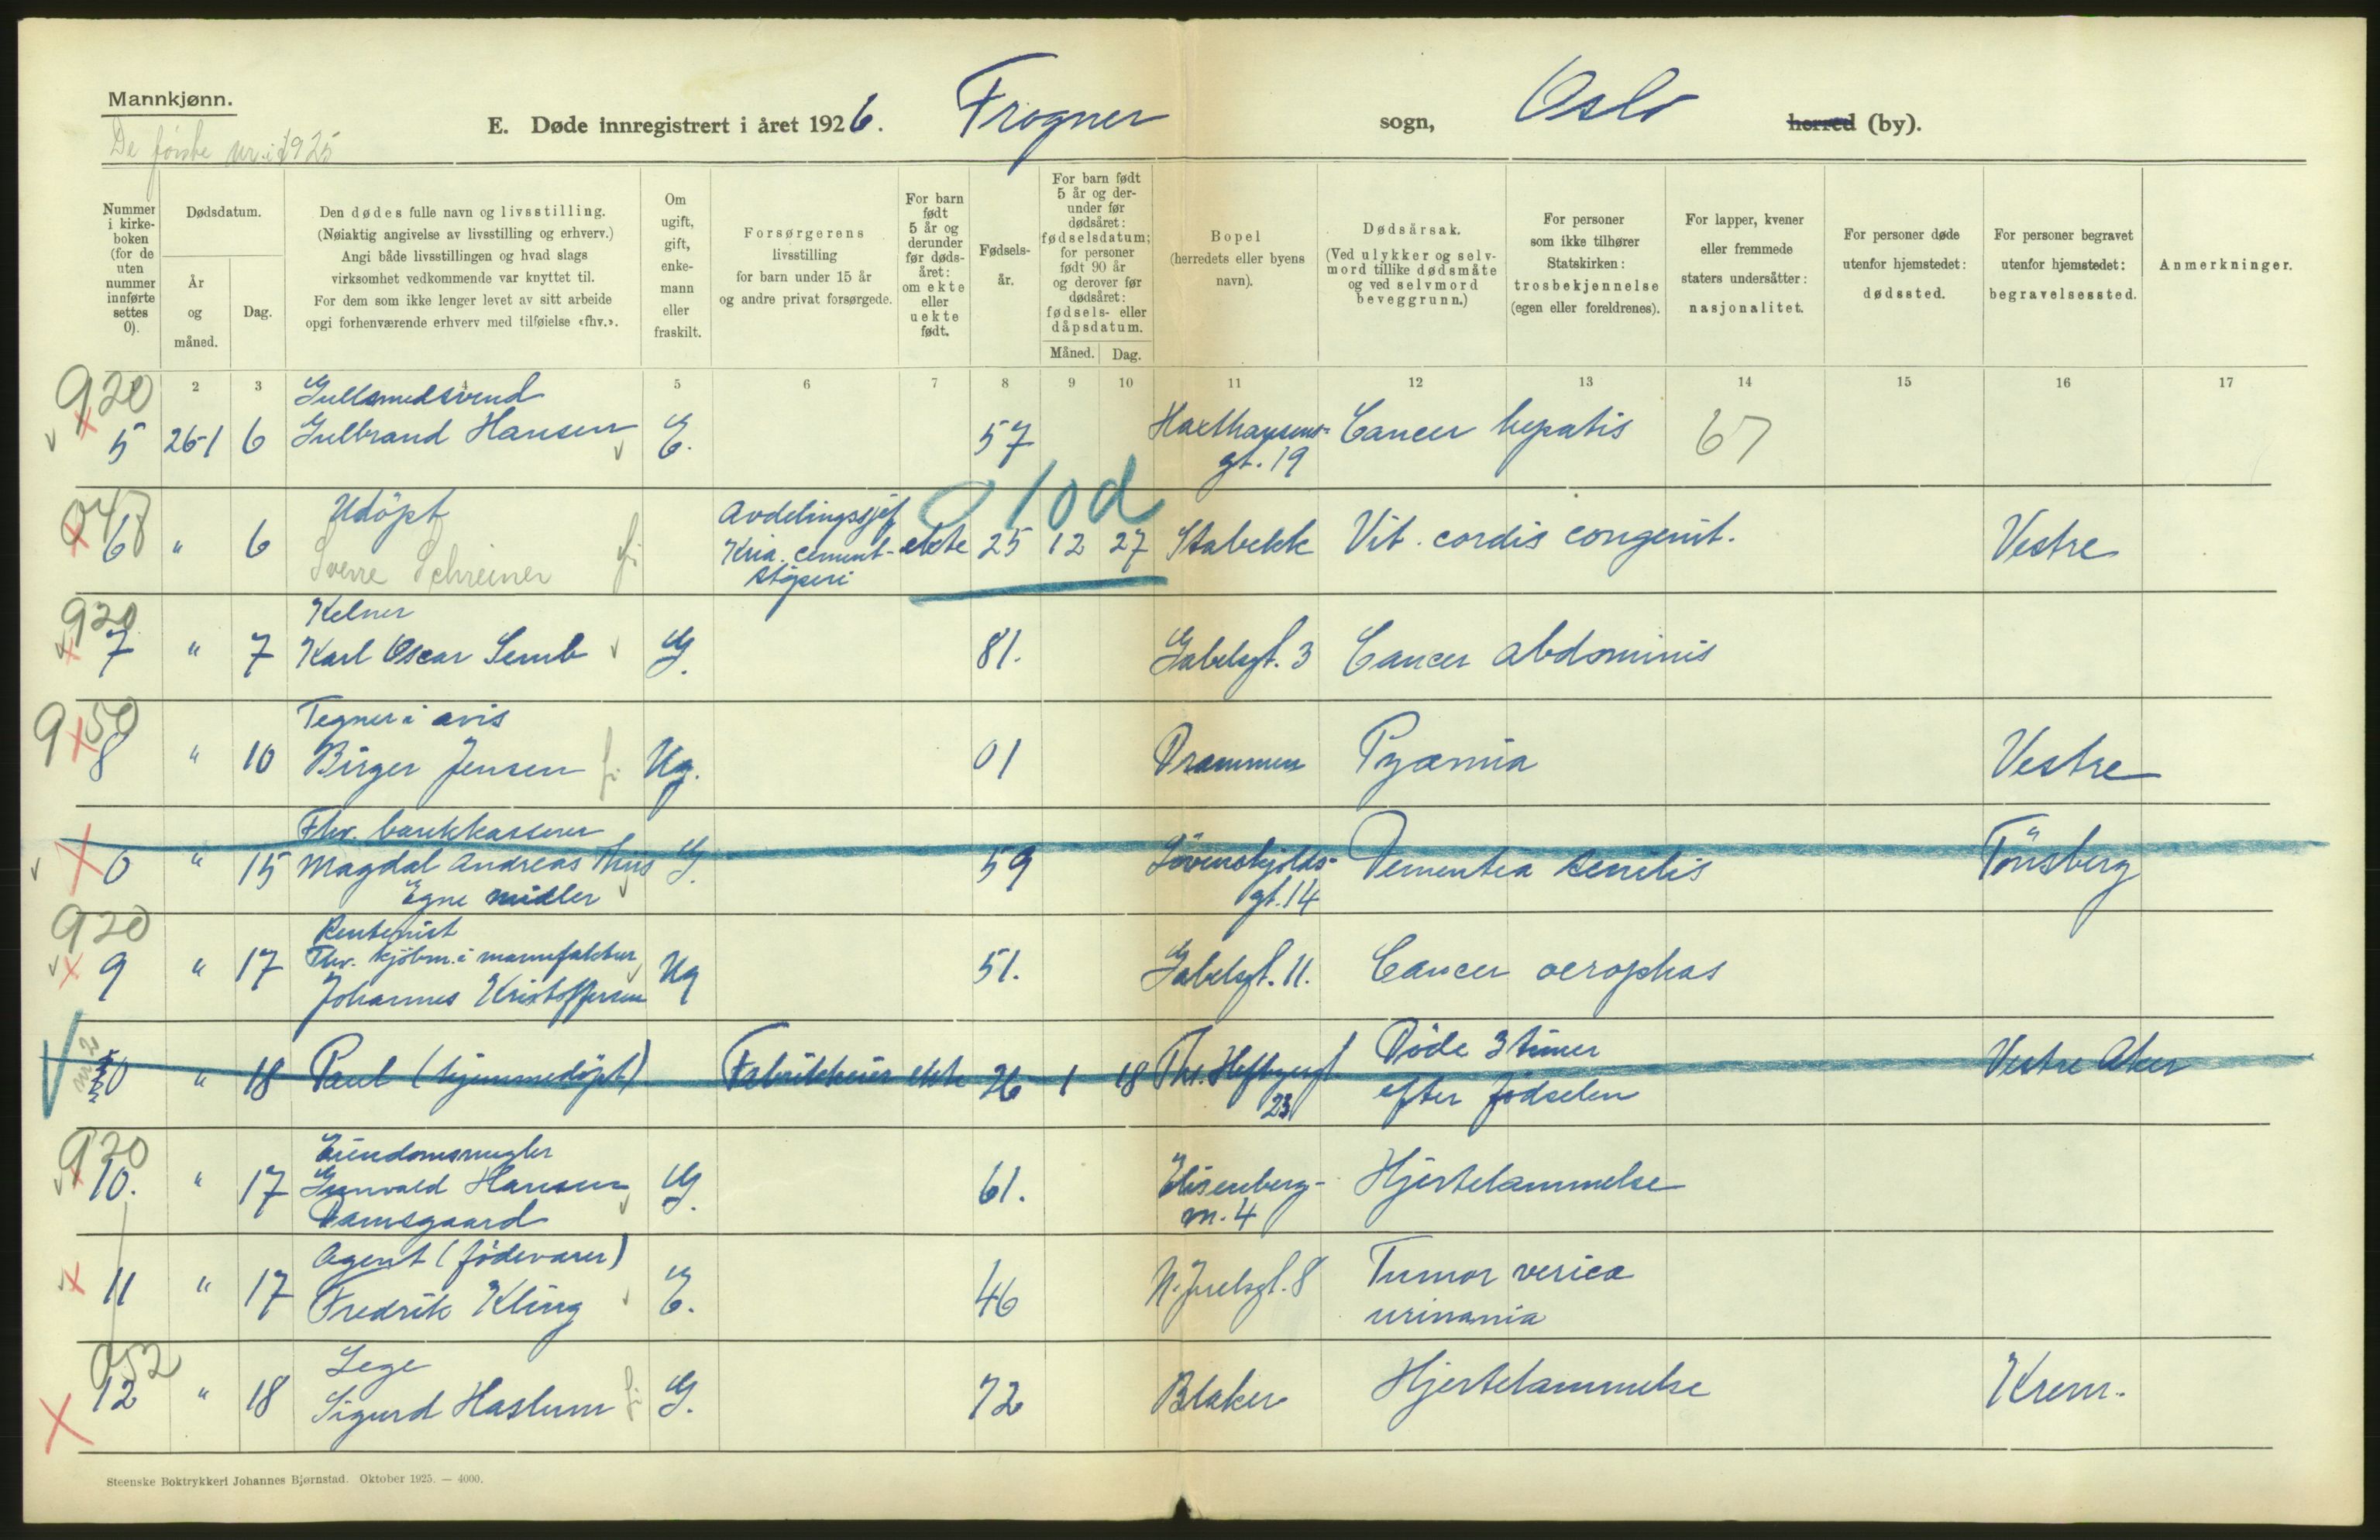 Mannkjønn.
De første nr. i 1925
E. Døde innregistrert i året 1926. Frogner sogn, Oslo herred (by).
Nummer i kirkeboken (for de uten nummer innførte settes 0).
Dødsdatum.
År og måned.
Dag.
Den dødes fulle navn og livsstilling.
(Nøiaktig angivelse av livsstilling og erhverv.)
Angi både livsstillingen og hvad slags
virksomhet vedkommende var knyttet til.
For dem som ikke lenger levet av sitt arbeide
opgi forhenværende erhverv med tilføielse «fhv.».
Om ugift, gift, enkemann eller fraskilt.
Forsørgerens
livsstilling
for barn under 15 år
og andre privat forsørgede.
For barn født 5 år og derunder før dødsåret: om ekte eller uekte født.
Fødselsår.
For barn født 5 år og derunder før dødsåret: fødselsdatum; for personer født 90 år og derover før dødsåret: fødsels- eller dåpsdatum.
Måned. Dag.
Bopel
(herredets eller byens
navn).
Dødsårsak.
(Ved ulykker og selvmord tillike dødsmåte og ved selvmord beveggrunn.)
For personer
som ikke tilhører
Statskirken:
trosbekjennelse
(egen eller foreldrenes).
For lapper, kvener
eller fremmede
staters undersåtter:
nasjonalitet.
For personer døde
utenfor hjemstedet:
dødssted.
For personer begravet
utenfor hjemstedet:
begravelsessted.
Anmerkninger.
2 3 4 5 6 7 8 9 10 11 12 13 14 15 16 17
920
Gullsmedsvend
5 26-1 6 Gulbrand Hansen E. 57 Haxthausens- Cancer hepatis 67
gt. 19
10d
Udöpt Avdelingssjef
6 " 6 Sverre Schreiner Kria. cement- ekte 25 12 27 Stabekk Vit. cordis congenit. Vestre
støperi
920
Kelner
7 " 7 Karl Oscar Semb G. 81. Gabelsgt. 3 Cancer abdominis
950
Tegner i avis
8 " 10 Birger Jensen Ug. 01 Drammen Pyæmia Vestre
Fhv. bankkasserer
0 " 15 Magdal Andreas Thiis G. 59 Løvenskjolds- Dementia senilis Tönsberg
Egne midler gt. 14
920
Rentenist
Fhv. kjöbm. i manufaktur
9 " 17 Johannes Kristoffersen Ug 51. Gabelsgt. 11. Cancer oesophas
0 " 18 Paul (hjemmedöpt) Fabrikkeier ekte 26 1 18 Th. Heftyesgt Döde 3 timer Vestre Aker
23 efter födselen
920
Eiendomsmegler
10. " 17 Gunvald Hansen G. 61. Elisenberg- Hjertelammelse
Damsgaard v. 4
Agent (födevarer)
11 " 17 Fredrik Kling E. 46 N. Juelsgt. 8 Tumor verica
urinaria
052
Lege
12 " 18 Sigurd Haslum G. 72 Blaker Hjertelammelse Krem.
Steenske Boktrykkeri Johannes Bjørnstad. Oktober 1925. — 4000.